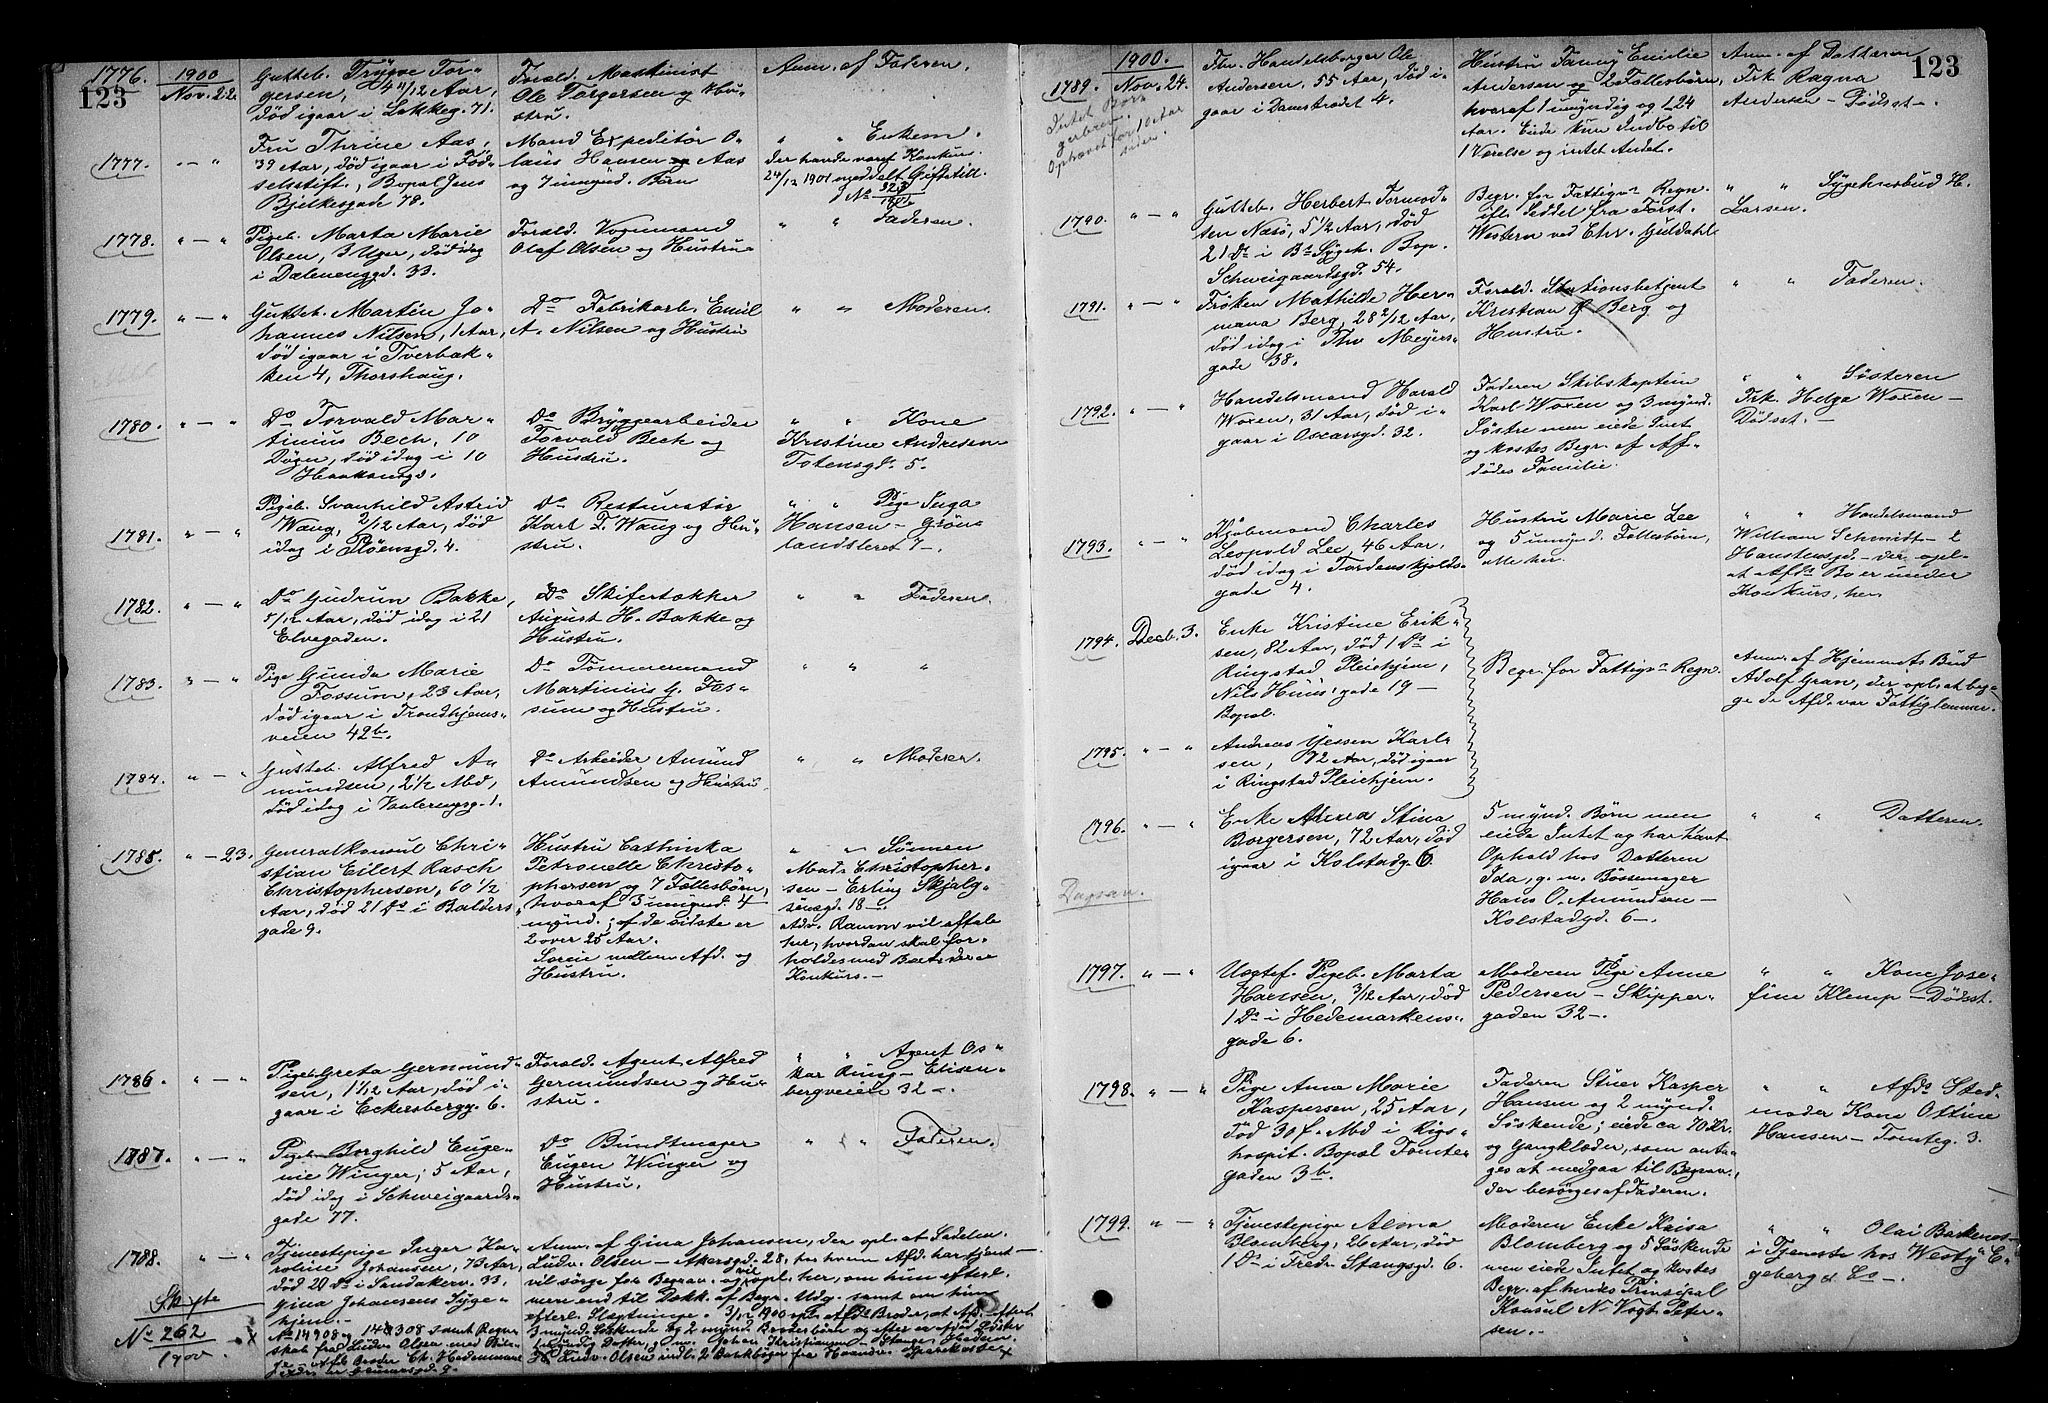 123
1776.
1900
Nov. 22.
Gutteb. Trygve Tor-
gersen, 4 11/12 Aar,
død igaar i Lakkeg. 71.
Forald. Maskinist
Ole Torgersen og Hu-
stru.
Anm. af Faderen.
1777.
" — "
Fru Thrine Aas,
39 Aar, død igaar i Fød-
selsstift., Bopæl Jens
Bjelkesgade 78.
Mand Expeditør O-
laus Hansen Aas
og 7 umynd. Børn
" " Enkem.
der havde været Konkurs.
24/12 1901 meddelt Giftetill.
1778.
" — "
Pigeb. Marta Marie
Olsen, 3 Uger, død idag
i Dælenenggd. 33.
Forald. Vognmand
Olaf Olsen og Hustru
" " Faderen.
1779.
" — "
Gutteb. Martin Jo-
hannes Nilsen, 1 Aar,
død igaar i Tverbak-
ken 4, Thorshaug.
Do Fabrikarb. Emil
A. Nilsen og Hustru
" " Moderen.
1780.
" — "
Do Torvald Mar-
tinius Bech, 10
Døgn, død idag i 10
Haakonsgd.
Do Bryggearbeider
Torvald Bech og
Hustru.
" " Kone
Kristine Andresen
Totensgd. 5.
1781.
" — "
Pigeb. Svanhild Astrid
Wang, 2/12 Aar, død
idag i Pløensgd. 4.
Do Restauratør
Karl F. Wang og Hu-
stru.
" " Pige Inga
Hansen — Grøn-
landsleret 7 —.
1782.
" — "
Do Gudrun Bakke,
5/12 Aar, død idag i 21
Elvegaden.
Do Skifertækker
August H. Bakke og
Hustru.
" " Faderen.
1783.
" — "
Pige Gunda Marie
Fossum, 23 Aar,
død igaar i Trondhjems-
veien 42b.
Do Tømmermand
Martinius G. Fos-
sum og Hustru.
" " "
1784.
" — "
Gutteb. Alfred A-
mundsen, 2 1/2 Md,
død idag i Vaalerengsg. 1.
Do Arbeider Amund
Amundsen og Hustru.
" " Moderen.
1785.
" — 23.
Generalkonsul Chri-
stian Eilert Rasch
Christophersen, 60 1/2
Aar, død 21 Ds i Balders-
gade 9.
Hustru Cathinka
Petronelle Christo-
phersen og 7 Fællesbørn,
hvoraf 3 umynd. 4
mynd.; af de sidste er
2 over 25 Aar.
Særeie mellem Afd. og
Hustru.
" " Sønnen
Mads Christopher-
sen — Erling Skjalg-
sønsgd. 18 —.
Adv. Ramm vil aftale
her, hvordan skal for-
holdes med Boet
Konkurs. —
1786.
" — "
Pigeb. Greta Germund-
sen, 1 1/12 Aar, død i-
gaar i Eckersbergg. 6.
Forald. Agent Alfred
Germundsen og Hu-
stru.
" " Agent Os-
kar Ring — Elisen-
bergveien 32 —.
1787.
" — "
Pigeb. Borghild Euge-
nie Winger, 5 Aar,
død idag i Schweigaards-
gade 77.
Do Bundtmager
Eugen Winger og
Hustru.
" " Faderen.
1788.
" — "
Tjenestepige Inger Ka-
roline Johansen, 73 Aar,
død 20 Ds i Sandakerv. 33.
Gina Johansens Syge-
hjem. —
Anm. af Gina Johansen, der opl. at Sadelm.
Ludv. Olsen — Akersgd. 28, hos hvem Afd. har tjent —
vil sørge for Begrav. og vil opl. her, om hun efterl.
mere end til Dækk. af Begr. Udg. samt om hun
efterl. Slægtninge. 3/12 1900 opl. Afds Broder, at Afd. efterl.
3 mynd. Søskende og 2 mynd. Broderbørn og efter en afdød Søster
Skifte
No 262
1900
No 14908 og 14308 samt Regn-
skab fra Ludv. Olsen med Bila-
ge
123
1789.
1900.
Nov. 24.
Intet Bor-
gerbrev.
Ophævet for 10 Aar
siden.
Fhv. Handelsborger Ole
Andersen, 55 Aar, død i-
gaar i Damstrædet 4.
Hustru Fanny Emilie
Andersen og 2 Fællesbørn,
hvoraf 1 umyndig og 1 24
Aar. Eiede kun Indbo til
1 Værelse og intet Andet.
Anm. af Datteren
Frk. Ragna
Andersen — Dødsst —.
1790.
" — "
Gutteb. Herbert Tormod-
sen Næsø, 5 1/2 Aar, død
21 Ds i Bs Sygeh. Bop.
Schweigaardsgd. 54.
Begr. for Fattigvs Regn.
ifl. Seddel fra Forst.
Western ved Chr. Guldahl.
" " Sygehusbud H.
Larsen.
1791.
" — "
Frøken Mathilde Her-
mana Berg, 28 2/12 Aar,
død idag i Thv Meyers-
gade 38.
Forald. Stationsbetjent
Kristian Berg og
Hustru.
" " Faderen.
1792.
" — "
Handelsmand Harald
Woxen, 31 Aar, død i-
gaar i Oscarsgd. 32.
Faderen Skibskaptein
Karl Woxen og 3 mynd.
Søstre men eiede Intet
og kostes Begr. af Af-
dødes Familie.
" " Søsteren
Frk. Helga Woxen —
Dødsst. —
1793.
" — "
Kjøbmand Charles
Leopold Lee, 46 Aar,
død idag i Tordenskjolds-
gade 4.
Hustru Marie Lee
og 5 umynd. Fællesbørn,
alle her.
" " Handelsmand
William Schmidt — 2
Haustensgd. — der opl.
at Afds Bo er under
Konkurs, her.
1794.
Decb. 3.
Enke Kristine Erik-
sen, 82 Aar, død 1 Ds i
Ringstad Pleiehjem,
Nils Huus' gade 19 —
Bopæl.
Begr. for Fattigvs Regn.
Anm. af Hjemmets Bud
Adolf Gran, der opl. at beg-
ge de Afd. var Fattiglemmer.
1795.
" — "
Andreas Yessen Karl-
sen, 72 Aar, død igaar
i Ringstad Pleiehjem.
1796.
" — "
Enke Stina
Borgersen, 72 Aar, død
igaar i Kolstadg. 6.
5 mynd. Børn men
eiede Intet og har havt
Ophold hos Datteren
Ida, g. m. Bøssemager
Hans O. Amundsen —
Kolstadgd. 6 —.
" " Datteren.
1797.
" — "
Uægtef. Pigeb. Marta
Hansen, 3/12 Aar, død
1 Ds i Hedemarkens-
gade 6.
Moderen Pige Anne
Pedersen — Skipper-
gaden 32 —.
" " Kone Jose-
fine Klemp — Dødsst.
1798.
" — "
Pige Anna Marie
Kaspersen, 25 Aar,
død 30 f. Md i Rigs-
hospit. Bopæl Tomte-
gaden 3b.
Faderen Stuer Kasper
Hansen og 2 mynd.
Søskende; eiede ca 70 Kr.
og Gangklæder, som anta-
ges at medgaa til Begrav.,
der besørges af Faderen.
" " Afds Sted-
moder Kone Ottine
Hansen — Tomteg. 3.
1799.
" — "
Tjenestepige Alma
Blomberg, 26 Aar, død
1 Ds i Fredr. Stangsgd. 6.
Moderen Enke Kaisa
Blomberg og 5 Søskende
men eiede Intet og kostes
Begr. af hendes Principal
Konsul N. Vogt Peter-
sen. —
" " Olai Bakken —
i Tjeneste hos Westby E-
geberg & Co —.